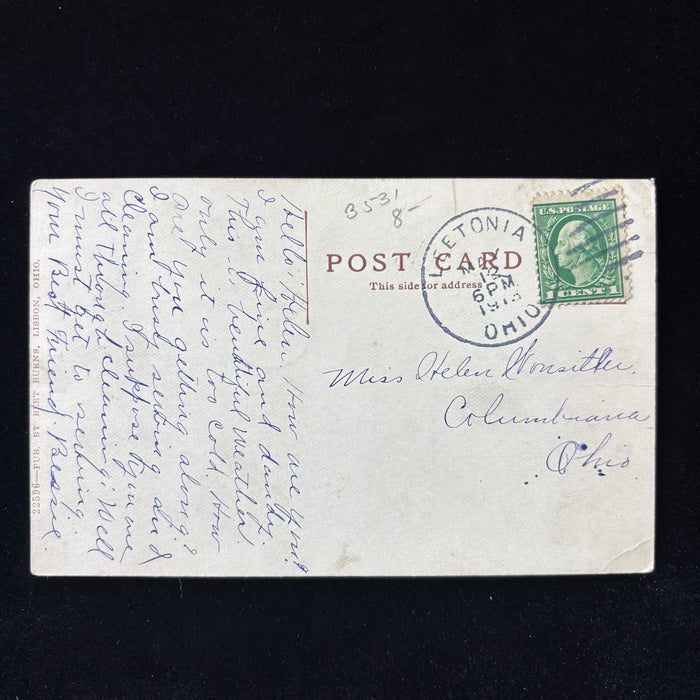 Hello! Helen. How are you?
I am fine and dandy.
This is beautiful weather
only it is too cold. How
are you getting along?
I am busy serving and
cleaning. I suppose you are
all through cleaning. Well
I must get to serving.
Your Best Friend, Bessie
22596—PUB. BY BERT BURNS, LISBON, OHIO.
3531
8—
POST CARD
This side for address
LEETONIA
MAY
12
6 PM
1913
OHIO
U.S. POSTAGE
1 CENT 1
Miss Helen Wonsitler.
Columbiana
Ohio.